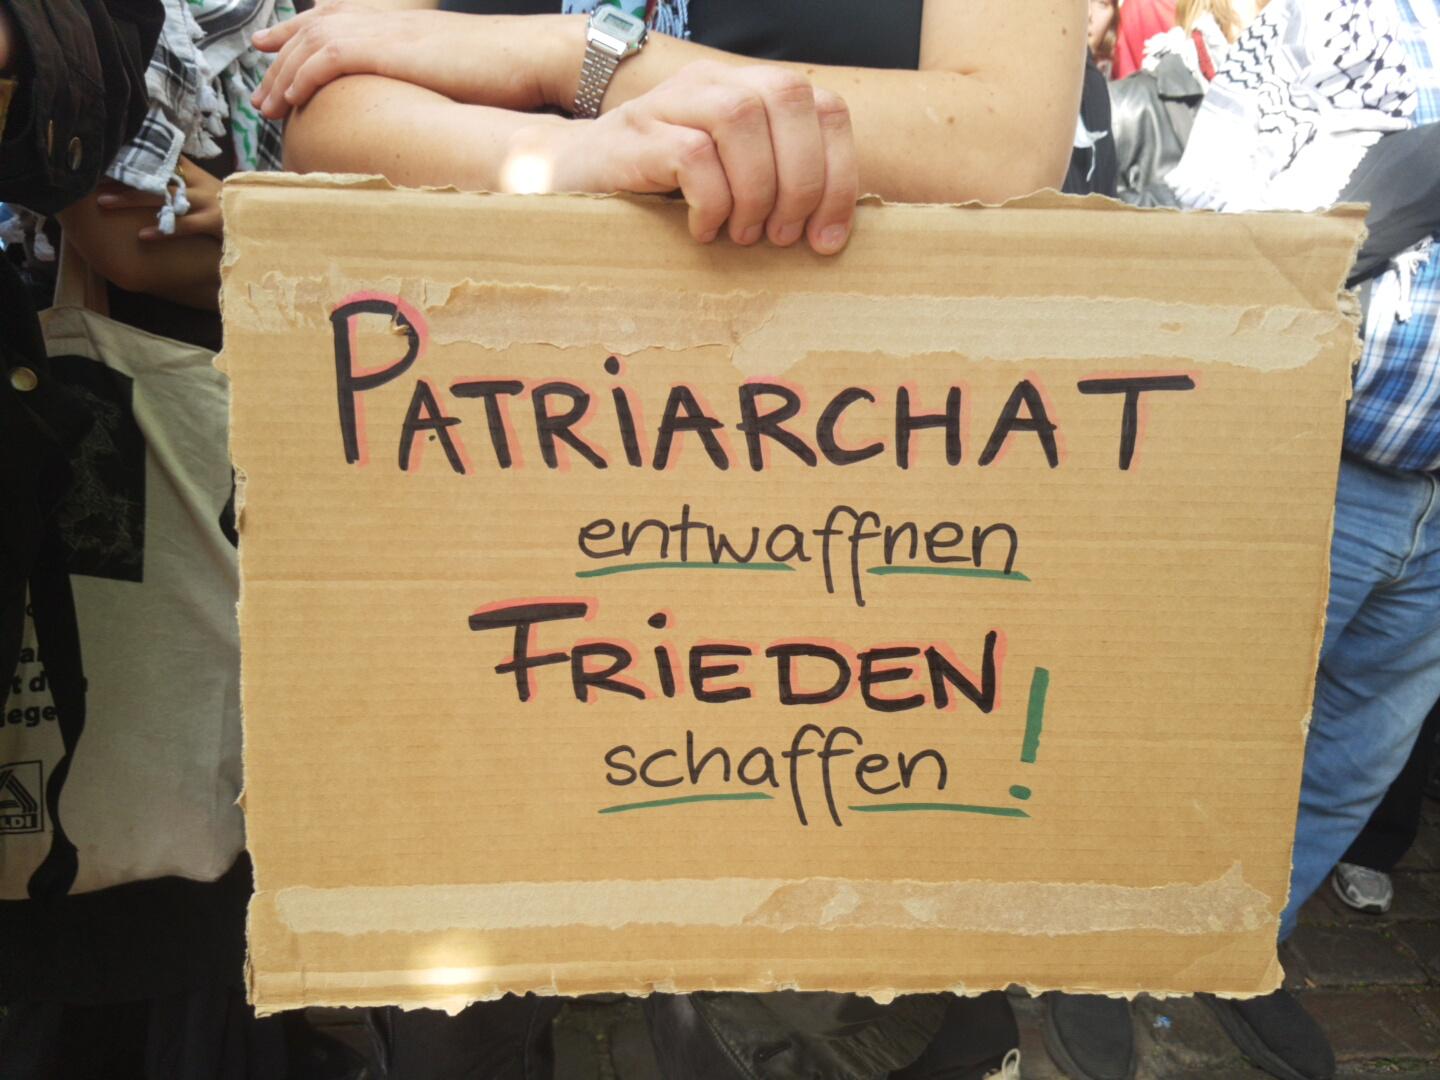 PATRiARCHAT
entwaffnen
FRiEDEN
schaffen!
LDI